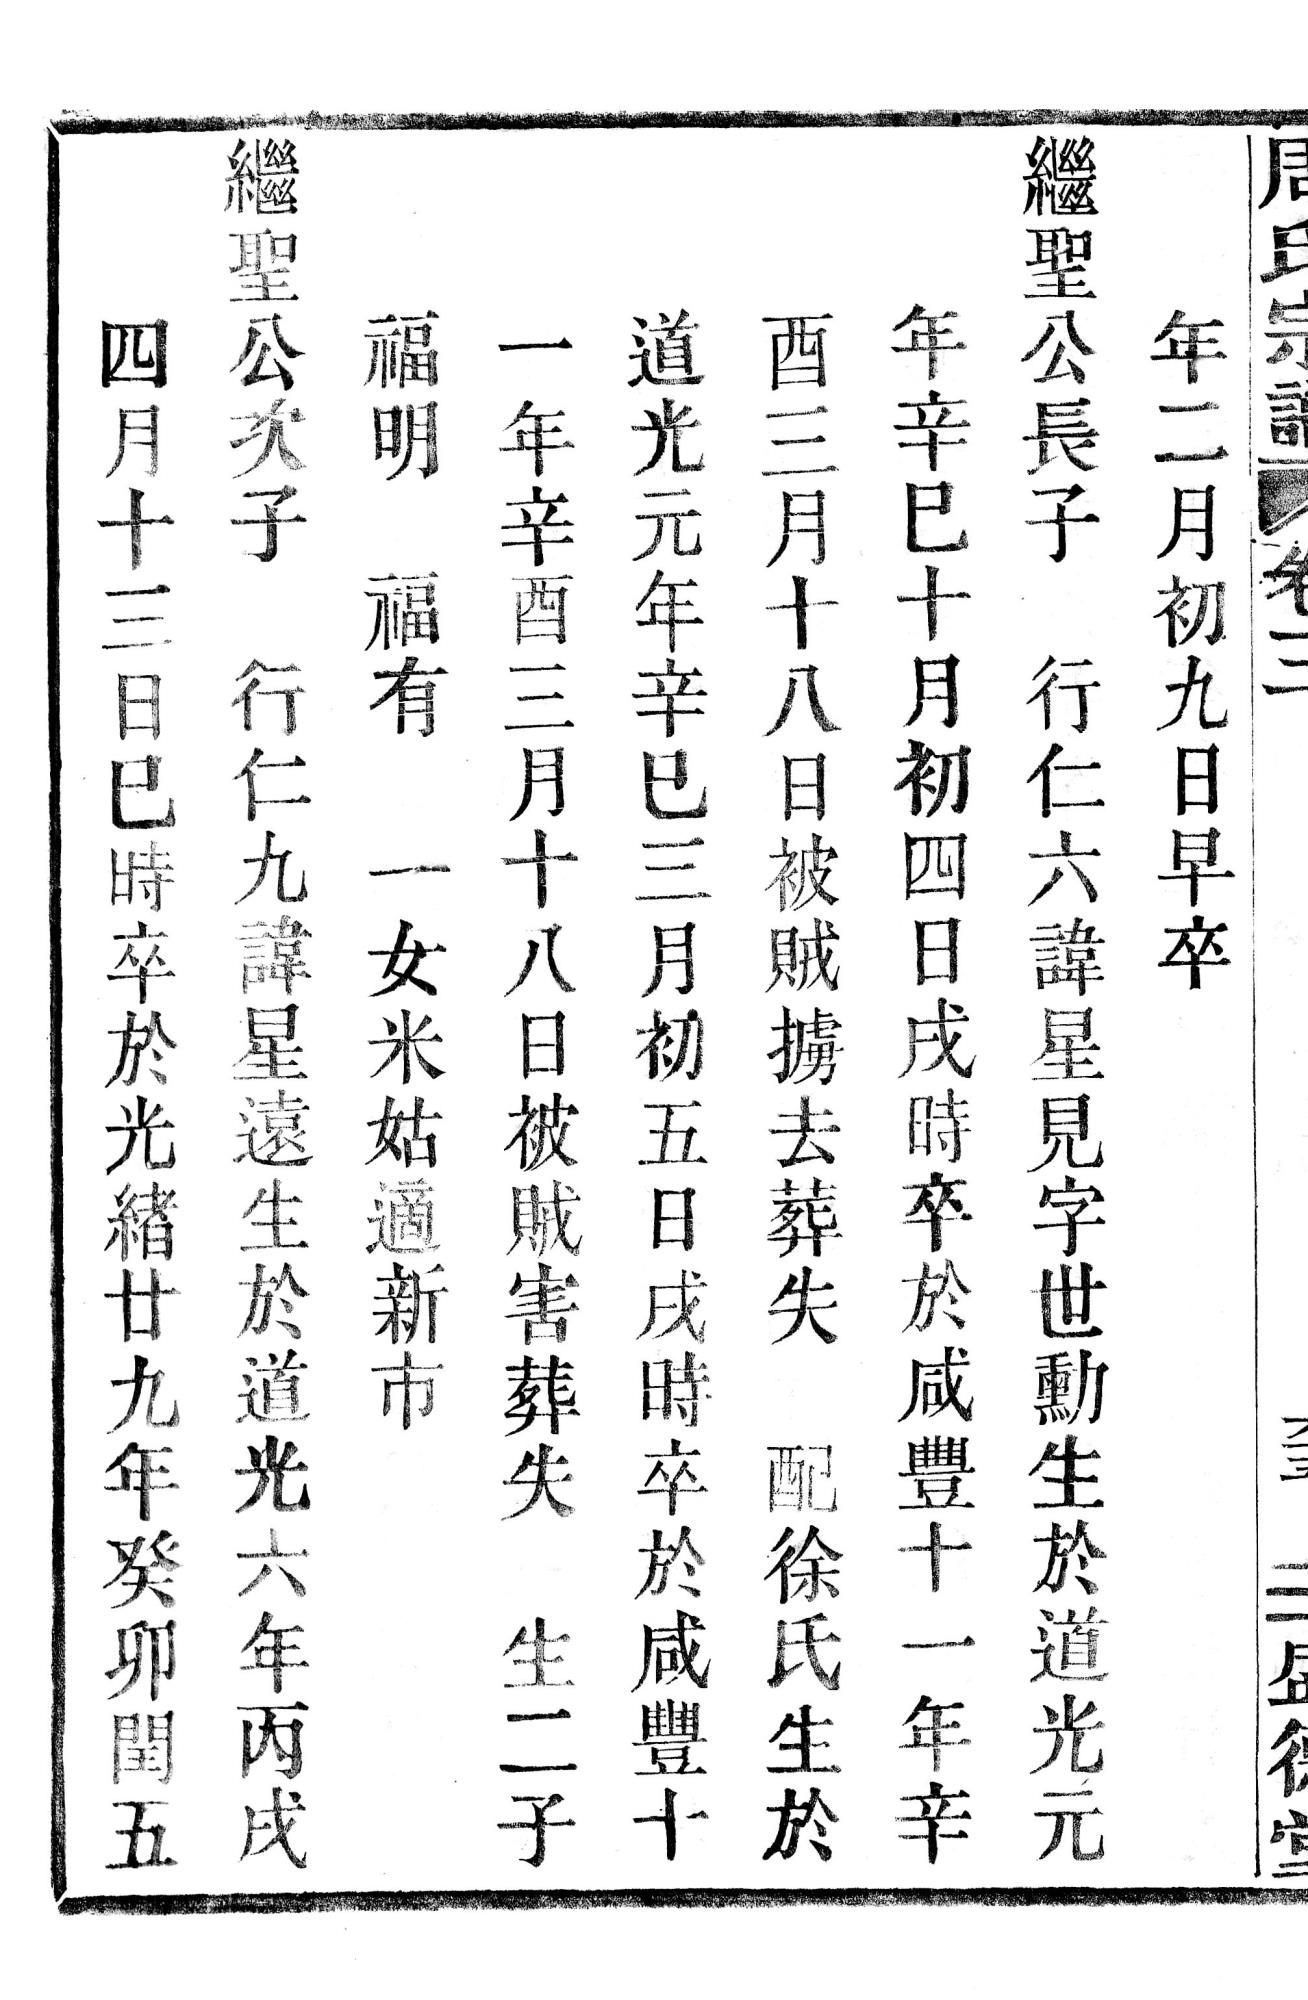 周氏宗譜 卷二 盛德堂
年二月初九日早卒
繼聖公長子 行仁六諱星見字世勳生於道光元
年辛巳十月初四日戌時卒於咸豐十一年辛
酉三月十八日被賊擄去葬失 配徐氏生於
道光元年辛巳三月初五日戌時卒於咸豐十
一年辛酉三月十八日被賊害葬失 生二子
福明 福有 一女米姑適新市
繼聖公次子 行仁九諱星遠生於道光六年丙戌
四月十三日巳時卒於光緒廿九年癸卯閏五